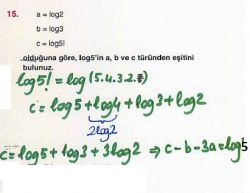 15. a = log2
b = log3
c = log5!
olduğuna göre, log5'in a, b ve c türünden eşitini
bulunuz.
log5! = log(5.4.3.2.1)
c = log5 + log4 + log3 + log2
2log2
c = log5 + log3 + 3log2 ⇒ c - b - 3a = log5